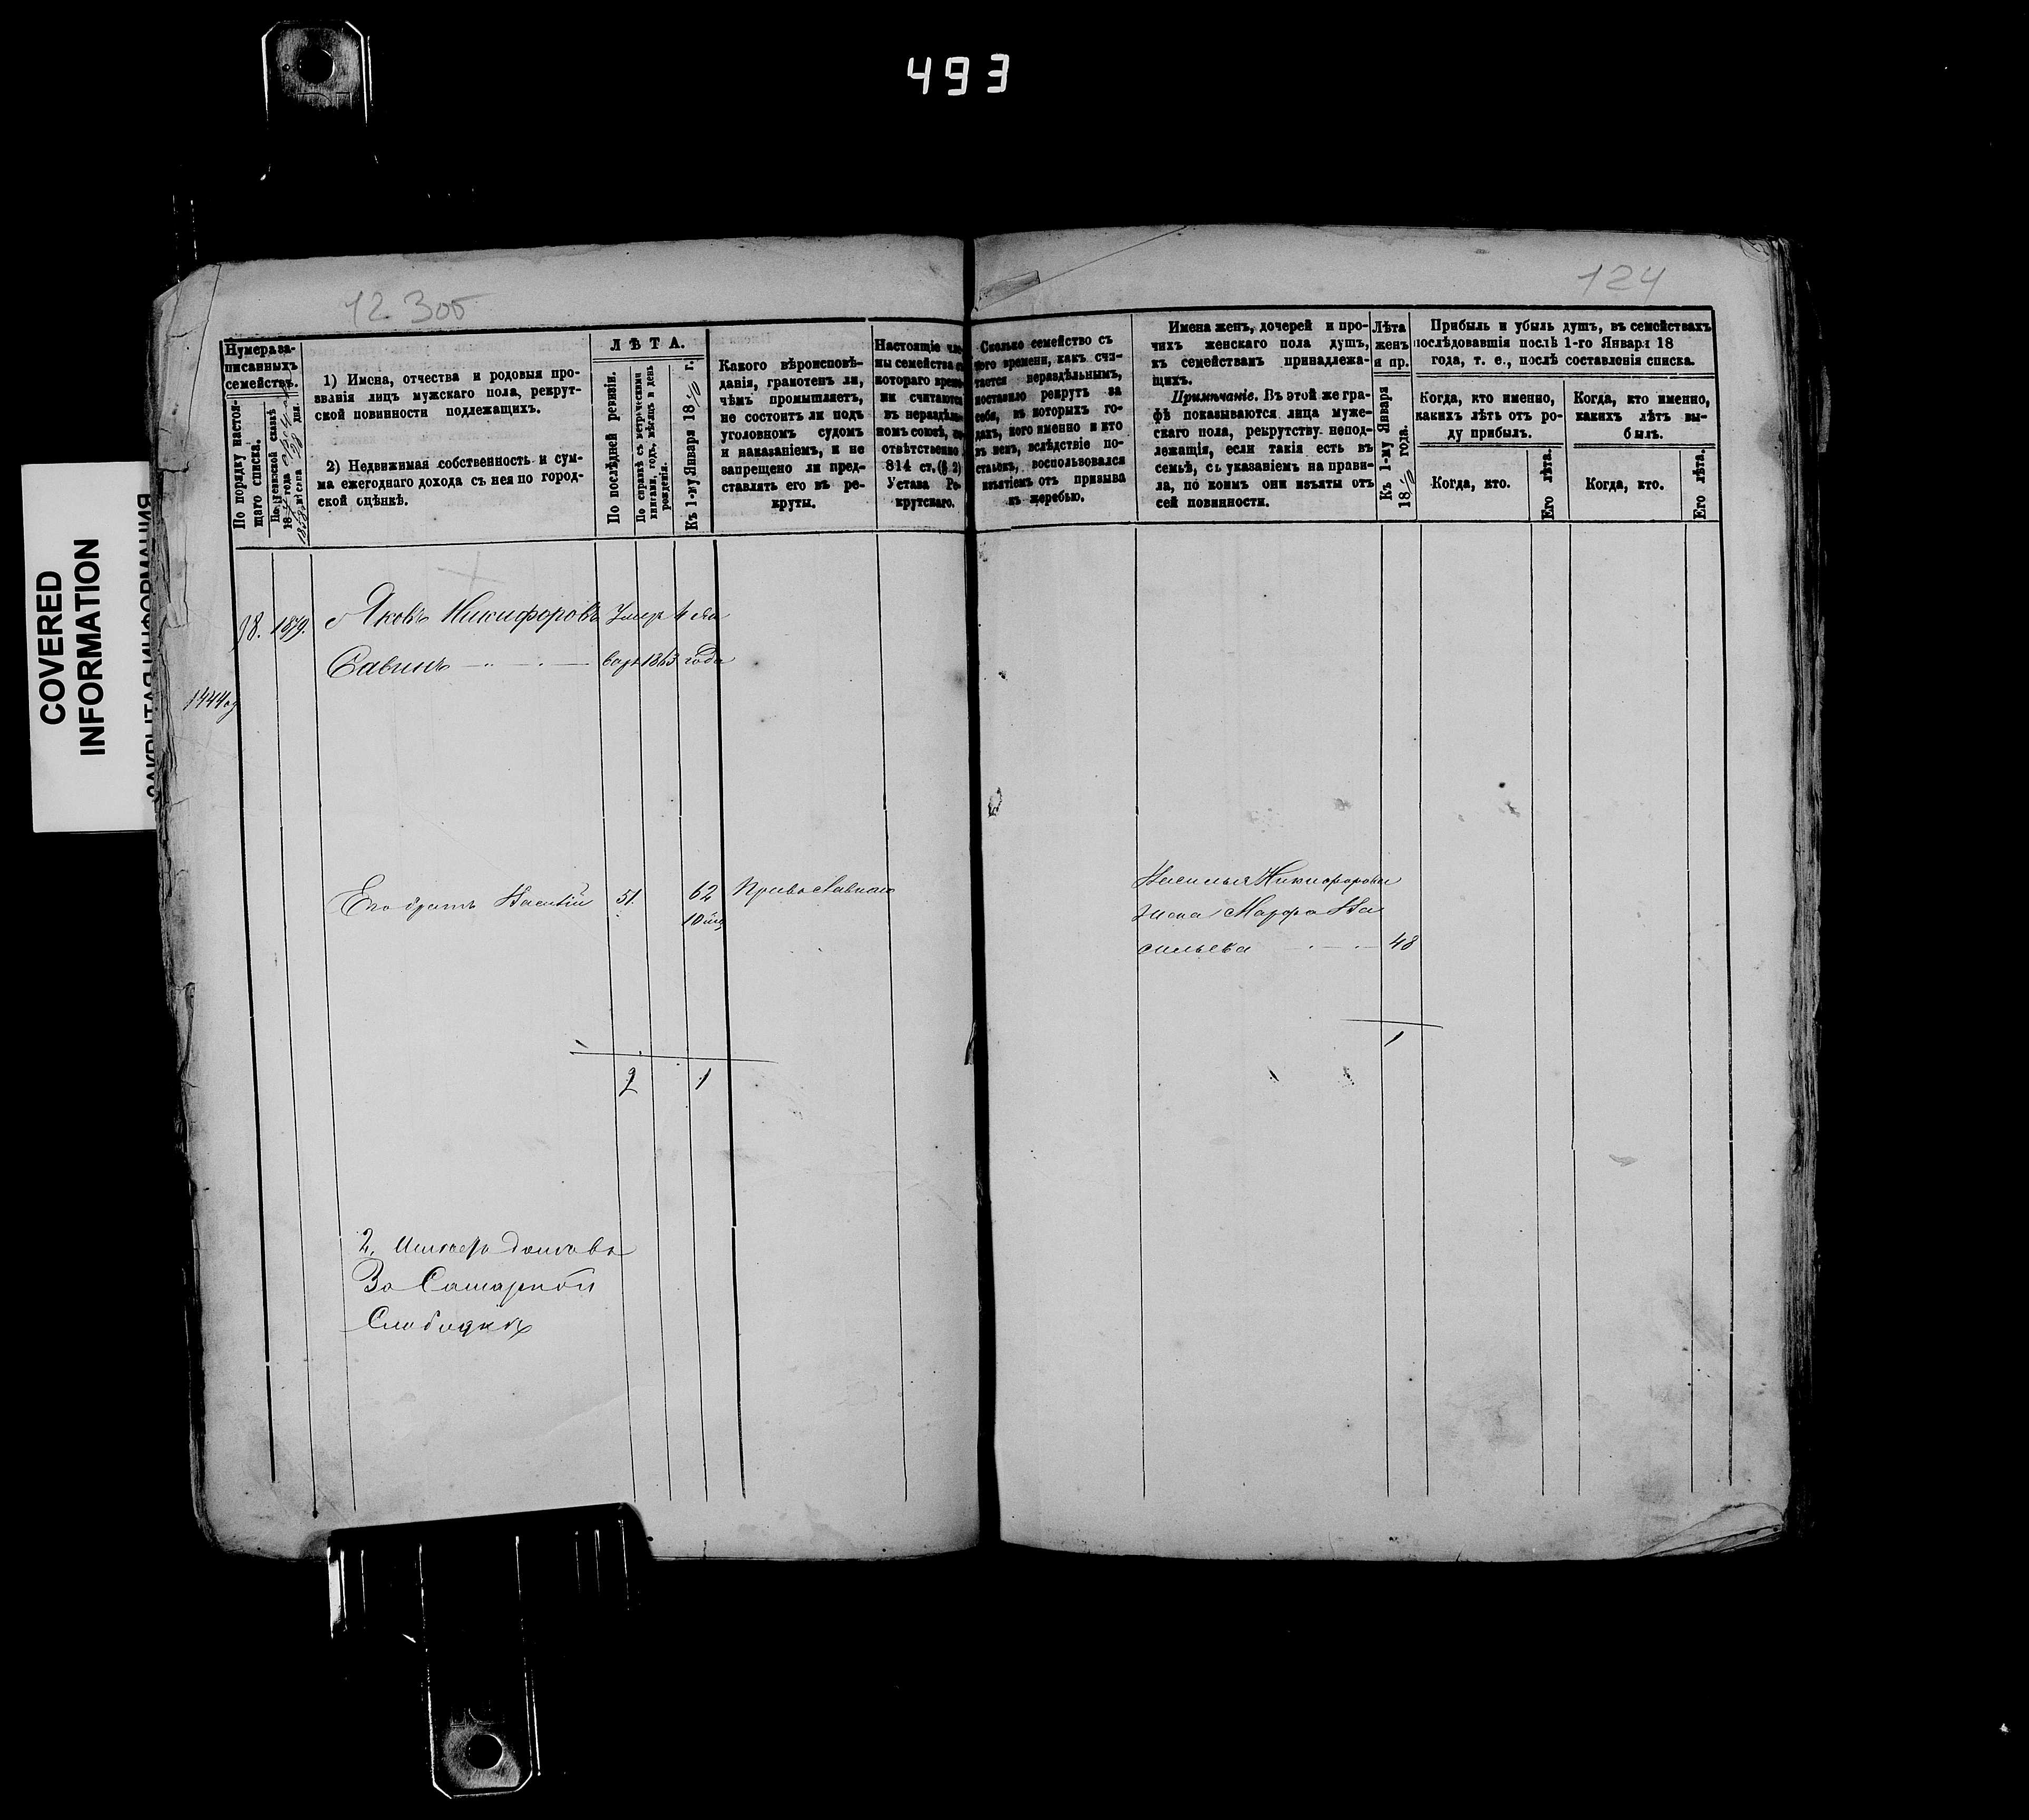 493
COVERED
INFORMATION
124
Нумера за-
писанныхъ
семействъ.
По порядку настоя-
щаго списка.
По ревизской сказкѣ
1) Имена, отчества и родовыя про-
званія лицъ мужскаго пола, рекрут-
ской повинности подлежащихъ.
2) Недвижимая собственность и сум-
ма ежегоднаго дохода съ нея по город-
ской оцѣнкѣ.
ЛѢТА.
По послѣдней ревизіи.
По справкѣ съ метрическими
книгами, годъ, мѣсяцъ и день
рожденія.
Къ 1-му Января 18 г.
Какого вѣроисповѣ-
данія, грамотенъ ли,
чѣмъ промышляетъ,
не состоитъ ли подъ
уголовномъ судомъ
и наказаніемъ, и не
запрещено ли пред-
ставлять его въ ре-
круты.
Настоящіе
ны семейства
котораго
ни считаются
въ
номъ союзѣ,
отвѣтственно
814 ст. (§ 2)
Устава Ре-
крутскаго.
Сколько семейство съ
того времени, какъ счи-
тается нераздѣльнымъ,
поставило рекрутъ за
себя, въ которыхъ го-
дахъ, кого именно и кто
въ немъ, вслѣдствіе по-
ставокъ, воспользовался
изъятіемъ отъ призыва
къ жеребью.
Имена женъ, дочерей и про-
чихъ женскаго пола душъ,
къ семействамъ принадлежа-
щихъ.
Примѣчаніе. Въ этой же гра-
фѣ показываются лица муже-
скаго пола, рекрутству непод-
лежащія, если такія есть въ
семьѣ, съ указаніемъ на прави-
ла, по коимъ они изъяты отъ
сей повинности.
Лѣта
женъ
и пр.
Къ 1-му Января
18 года.
Прибыль и убыль душъ, въ семействахъ
послѣдовавшія послѣ 1-го Января 18
года, т. е., послѣ составленія списка.
Когда, кто именно,
какихъ лѣтъ отъ ро-
ду прибылъ.
Когда, кто именно,
какихъ лѣтъ вы-
былъ.
Когда, кто.
Его лѣта.
Когда, кто.
Его лѣта.
Яковъ Никифоровъ Умеръ 4 Ян
Савинъ варя 1863 года
Его братъ Василій 51. 62 Православнаго
Василья Никифорова
жена Марфа Ва
сильева 48
1
2 1
2. Имѣетъ домъ въ
За Самарной
Слободкѣ